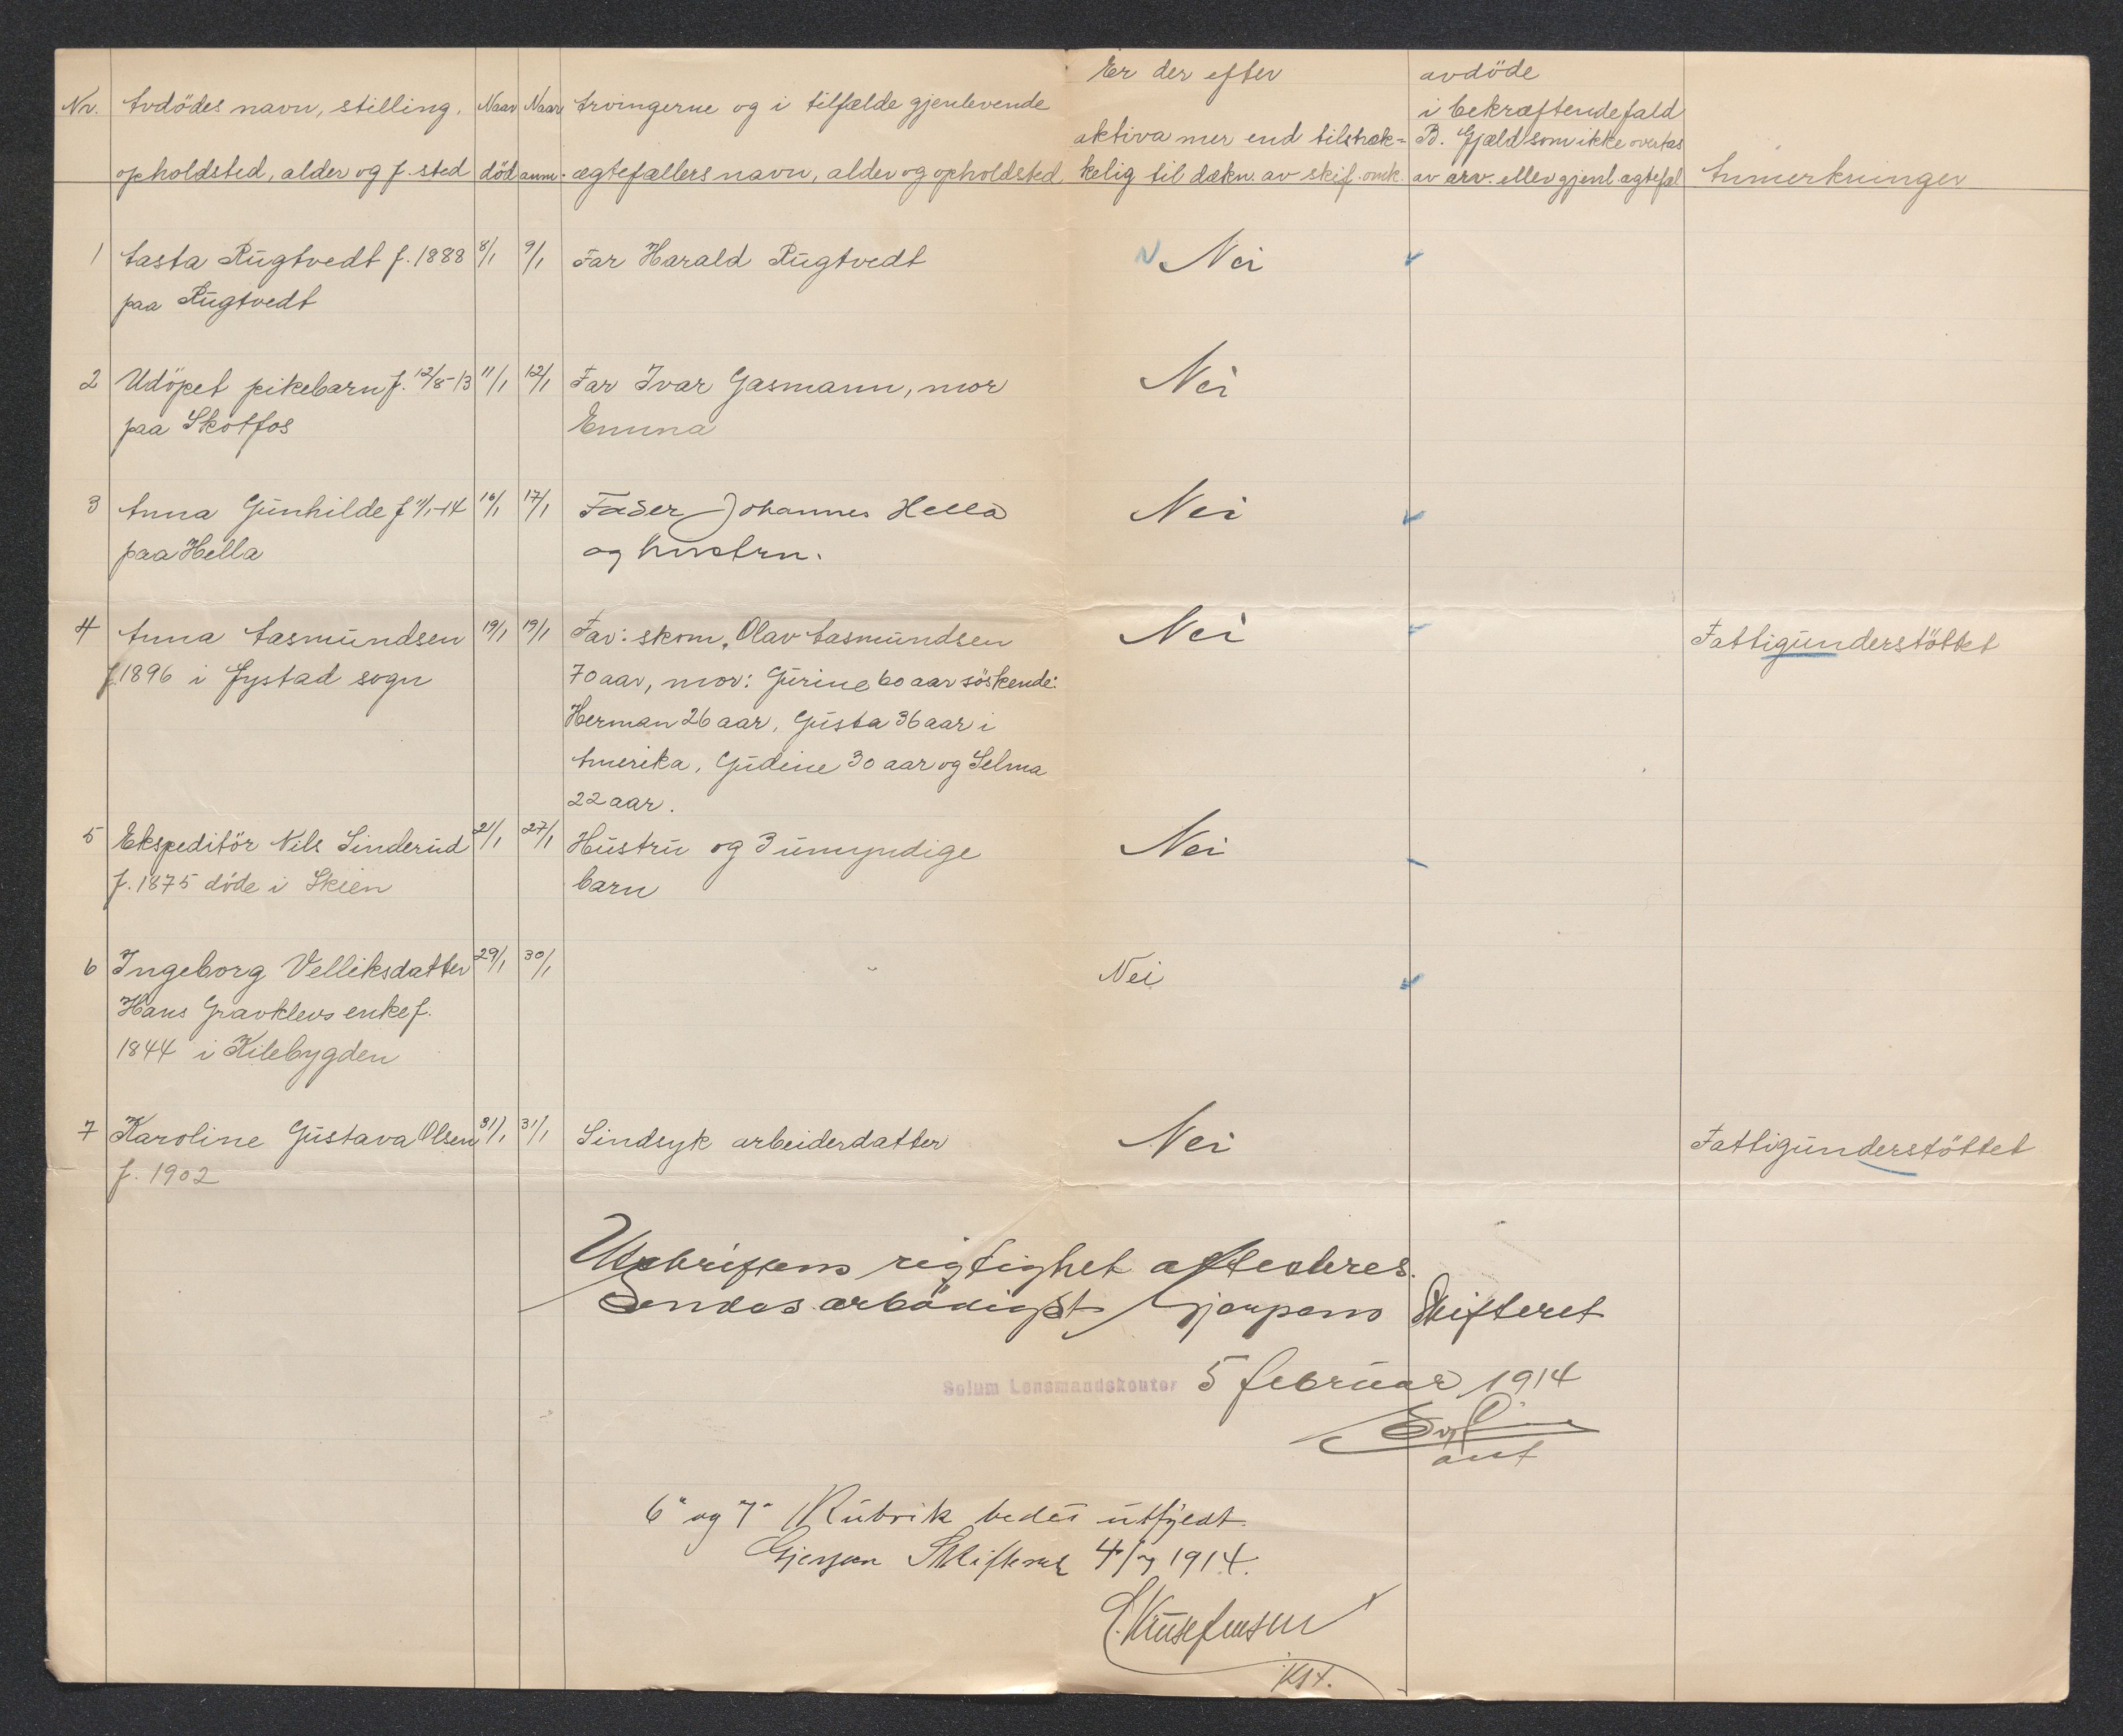 Er der efter avdöde
Nr. Avdödes navn, stilling, Naar Naar Arvingerne og i tilfælde gjenlevende i bekræftende fald
aktiva mer end tilstræk- B. Gjæld som ikke overtas
opholdsted, alder og f. sted död anm. ægtefællers navn, alder og opholdsted kelig til dækn. av skif. omk. av arv. eller gjenl. ægtefæl Anmerkninger
1 Aasta Rugtvedt f. 1888 8/1 9/1 Far Harald Rugtvedt Nei
paa Rugtvedt
2 Udöpet pikebarn f. 12/8-13 11/1 12/1 Far Ivar Gasmann, mor Nei
paa Skotfos Emma
3 Anna Gunhilde f 11/1-14 16/1 17/1 Fader Johannes Hella Nei
paa Hella og hustru.
4 Anna Aasmundsen 19/1 19/1 Far: skom. Olav Aasmundsen Nei Fattigunderstöttet
f. 1896 i Fystad sogn 70 aar, mor: Gurine 60 aar söskende:
Herman 26 aar, Gusta 36 aar i
Amerika, Gudine 30 aar og Selma
22 aar.
5 Ekspeditör Nils Linderud 21/1 27/1 Hustru og 3 umyndige Nei
f. 1875 döde i Skien barn
6 Ingeborg Velliksdatter 29/1 30/1 Nei
Hans Gravklevs enke f.
1844 i Kilebygden
7 Karoline Gustava Olsen 31/1 31/1 Sindsyk arbeiderdatter Nei Fattigunderstöttet
f. 1902
Utskriftens rigtighet attesteres.
Sendes ærbödigst Gjerpens Skifteret
Solum Lensmandskontor 5 februar 1914
6" og 7" Rubrik bedes utfyldt.
Gjerpen Skifteret 4/7 1914.
Kst.